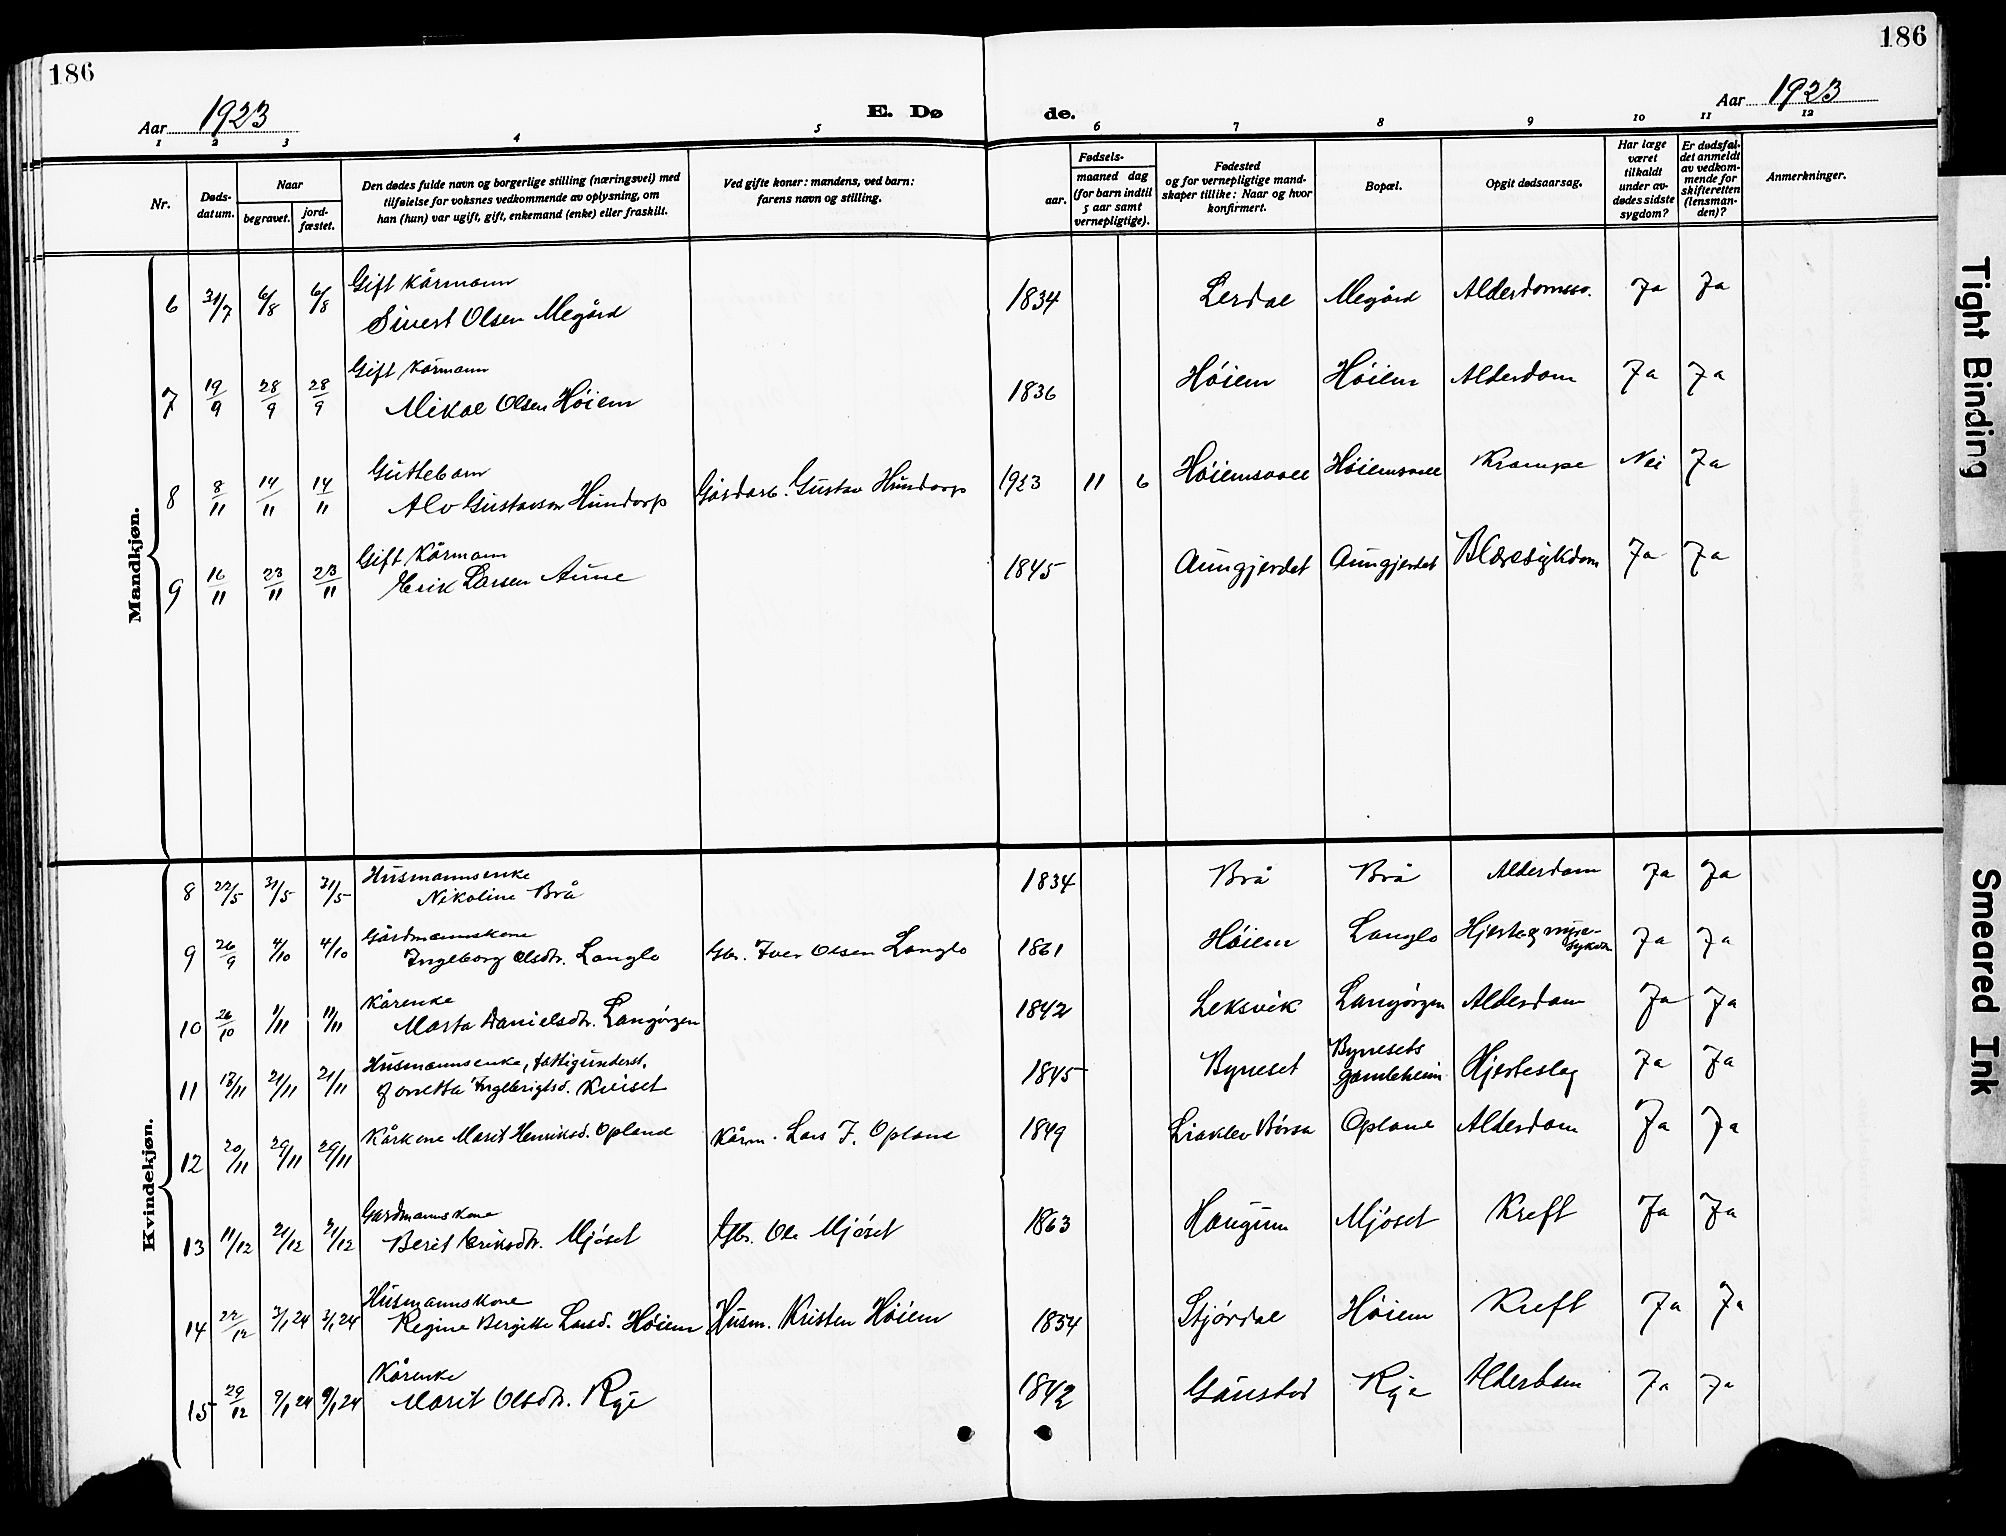 186
186
Aar 1923
E. Dø
de.
Aar 1923
1 2 3 4 5 6 7 8 9 10 11 12
Nr.
Døds-
datum.
Naar
begravet.
jord-
fæstet.
Den dødes fulde navn og borgerlige stilling (næringsvei) med
tilføielse for voksnes vedkommende av oplysning, om
han (hun) var ugift, gift, enkemand (enke) eller fraskilt.
Ved gifte koner: mandens, ved barn:
farens navn og stilling.
Fødsels-
aar.
maaned dag
(for barn indtil
5 aar samt
vernepligtige).
Fødested
og for vernepligtige mand-
skaper tillike: Naar og hvor
konfirmert.
Bopæl.
Opgit dødsaarsag.
Har læge
været
tilkaldt
under av-
dødes sidste
sygdom?
Er dødsfal-
det anmeldt
av vedkom-
mende for
skifteretten
(lensman-
den)?
Anmerkninger.
Mandkjøn.
Gift kårmann
6 31/7 6/8 6/8 Sivert Olsen Megård 1834 Lerdal Megård Alderdomssv. Ja Ja
Gift kårmann
7 19/9 28/9 28/9 Mikal Olsen Høiem 1836 Høiem Høiem Alderdom Ja Ja
Guttebarn
8 8/11 14/11 14/11 Alv Gustavson Hundorp Gårdarb. Gustav Hundorp 1923 11 6 Høiemsvald Høiemsvald Krampe Nei Ja
Gift Kårmann
9 16/11 23/11 23/11 Erik Larsen Aune 1845 Aungjerdet Aungjerdet Blæresykdom Ja Ja
Kvindekjøn.
Husmannsenke
8 22/5 31/5 31/5 Nikoline Brå 1834 Brå Brå Alderdom Ja Ja
Gårdmannskone
9 26/9 4/10 4/10 Ingeborg Olsdtr. Langlo Gbr. Iver Olsen Langlo 1861 Høiem Langlo Hjerte og nyre-
sykdom Ja Ja
Kårenke
10 26/10 1/11 11/11 Marta Danielsdtr. Langørgen 1842 Leksvik Langørgen Alderdom Ja Ja
Husmannsenke, fattigunderst.
11 13/11 21/11 21/11 Jonetta Ingebrigtsd. Kviset 1845 Byneset Bynesets
gamleheim Hjerteslag Ja Ja
12 20/11 29/11 29/11 Kårkone Marit Henriksd. Opland Kårm. Lars J. Opland 1849 Liaklev Børsa Opland Alderdom Ja Ja
Gardmannskone
13 11/12 21/12 21/12 Berit Eriksdtr. Mjøset Gbr. Ole Mjøset 1863 Haugum Mjøset Kreft Ja Ja
Husmannskone
14 22/12 3/1 24 3/1 24 Regine Bergitte Larsd. Høiem Husm. Kristen Høiem 1854 Stjørdal Høiem Kreft Ja Ja
Kårenke
15 29/12 9/1 24 9/1 24 Marit Olsdtr. Rye 1842 Gaustad Rye Alderdom Ja Ja
Tight Binding
Smeared Ink